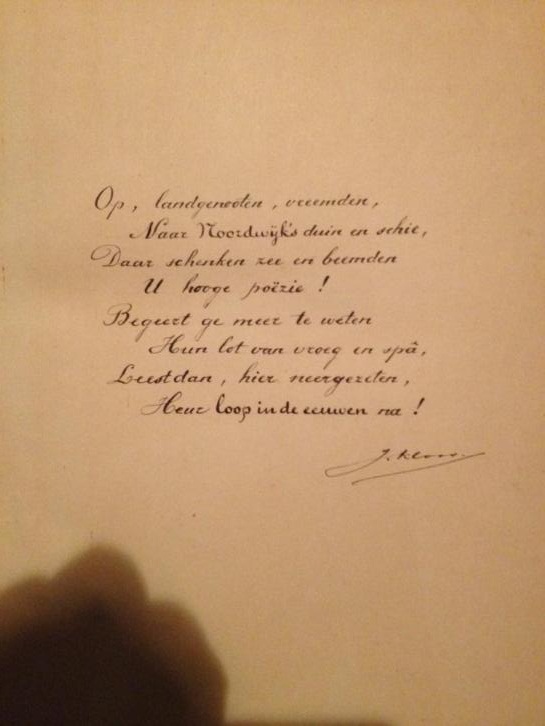 Op, landgenooten, vreemden,
Naar Noordwijk's duin en schie,
Daar schenken zee en beemden
U hooge poëzie !
Begeert ge meer te weten
Hun lot van vroeg en spâ,
Leest dan, hier neergezeten,
Heur loop in de eeuwen na !
J. Kloos.